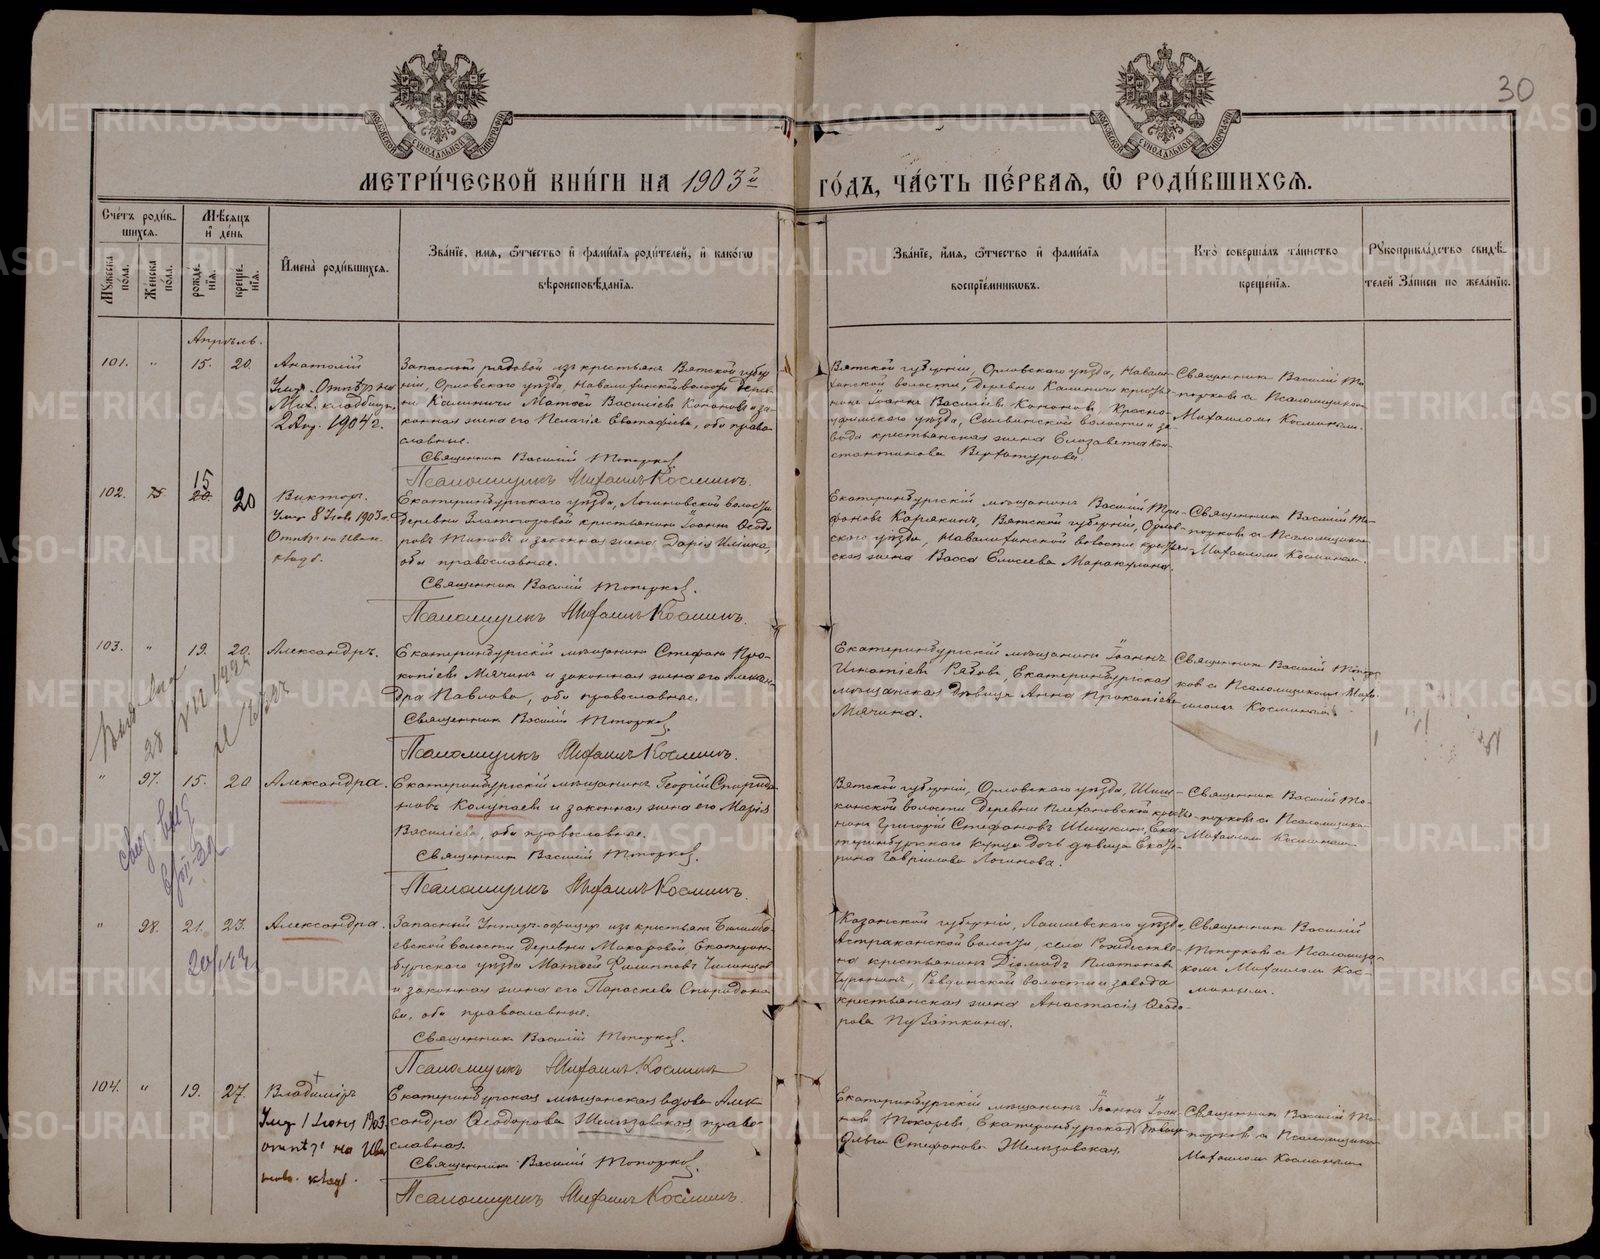 30
МЕТРИ́ЧЕСКОЙ КНИ́ГИ НА 1903й ГО́ДЪ, ЧА́СТЬ ПЕ́РВАЯ, Ѡ РОДИ́ВШИХСЯ.
Счетъ роди́вшихся.
Мꙋжеска пола.
Женска пола.
Мѣсяцъ и день
рожденія.
крещенія.
Имена̀ роди́вшихся.
Зва́ніе, имя, ѿчество и фами́лія роди́телей, и како́гѡ
вѣроисповѣданія.
Зва́ніе, имя, ѿчество и фами́лія
воспріе́мникѡвъ.
Кто̀ соверша́лъ та́инство
креще́нія.
Рꙋкоприкла́дство свидѣ-
телей за́писи по жела́нію.
Апрѣль.
101. " 15. 20. Анатолій
Умер. Отпѣт на
Мих. кладбищѣ
2 Авг. 1904 г.
Запасный рядовой изъ крестьянъ Вятской губер
ніи, Орловскаго уѣзда,
Калиничи Матвей Василіевъ Конановъ и за-
конная жена его Пелагія Евстафіева, оба право-
славные.
Священникъ Василій Топорковъ.
Псаломщикъ Михаилъ Космынъ.
Вятской губерніи, Орловскаго уѣзда,
волости, деревни Калиничи крестья-
нинъ Іоаннъ Василіевъ Конановъ, Красно-
уфимскаго уѣзда, Сылвинской волости и за-
вода крестьянская жена Елизавета Кон-
стантинова
Священникъ Василій То-
порковъ с Псаломщикомъ
Михаиломъ Космынымъ.
102. 15 20 Викторъ.
Умер 8 1903 г.
Отпѣт на Иван.
кладб.
Екатеринбургскаго уѣзда, Логиновской волости
деревни Златогоровой крестьянинъ Іоаннъ Ѳеодо
ровъ Титовъ и законная жена Дарія Ильина,
оба православные.
Священникъ Василій Топорковъ.
Псаломщикъ Михаилъ Космынъ.
Екатеринбургскій мѣщанинъ Василій Три-
фоновъ Карякинъ, Вятской губерніи, Орлов-
скаго уѣзда, волости крестьян-
ская жена Васса Елисеева Маракулина.
Священникъ Василій То-
порковъ с Псаломщикомъ
Михаиломъ Космынымъ.
103. " 19. 20. Александръ.
Екатеринбургскій мѣщанинъ Стефанъ Про-
копіевъ Мячинъ и законная жена его Алексан
дра Павлова, оба православные.
Священникъ Василій Топорковъ.
Псаломщикъ Михаилъ Космынъ.
Екатеринбургскій мѣщанинъ Іоаннъ
Игнатіевъ Рябовъ, Екатеринбургская
мѣщанская дѣвица Анна Прокопіева
Мячина.
Священникъ Василій Топор-
ковъ с Псаломщикомъ Миха-
иломъ Космынымъ.
" 97. 15. 20 Александра.
Екатеринбургскій мѣщанинъ Георгій Спиридо
новъ Колупаевъ и законная жена его Марія
Василіева, оба православные.
Священникъ Василій Топорковъ.
Псаломщикъ Михаилъ Космынъ.
Вятской губерніи, Орловскаго уѣзда, Шиш-
канской волости деревни крестья-
нинъ Григорій Стефановъ Шишкинъ, Ека-
теринбургскаго купца дочь дѣвица Екате-
рина Гавріилова Логинова.
Священникъ Василій То-
порковъ с Псаломщикомъ
Михаиломъ Космынымъ.
" 98. 21. 23. Александра.
Запасный Унтеръ-офицеръ изъ крестьянъ Билимба-
евской волости деревни Макаровой Екатерин-
бургскаго уѣзда Матвей Филипповъ
и законная жена его Параскева Спиридоно
ва, оба православные.
Священникъ Василій Топорковъ.
Псаломщикъ Михаилъ Космынъ
Казанской губерніи, Лаишевскаго уѣзда,
Астраханской волости, села Рождествен-
на крестьянинъ Діомидъ Платоновъ
Ревдинской волости и завода
крестьянская жена Анастасія Ѳеодо-
рова
Священникъ Василій
Топорковъ с Псаломщи-
комъ Михаиломъ Кос-
мынымъ.
104. " 19. 27. Владиміръ
Умер 1 Іюня 1903
отпѣт на Ива
нов. клад.
Екатеринбургская мѣщанская вдова Алек-
сандра Ѳеодорова Желѣзовская, право-
славная.
Священникъ Василій Топорковъ.
Псаломщикъ Михаилъ Космынъ.
Екатеринбургскій мѣщанинъ Іоаннъ Іоан-
новъ Токаревъ, Екатеринбургская дѣвица
Ольга Стефанова Желѣзовская.
Священникъ Василій То-
порковъ с Псаломщикомъ
Михаиломъ Космынымъ
METRIKI.GASO-URAL.RU